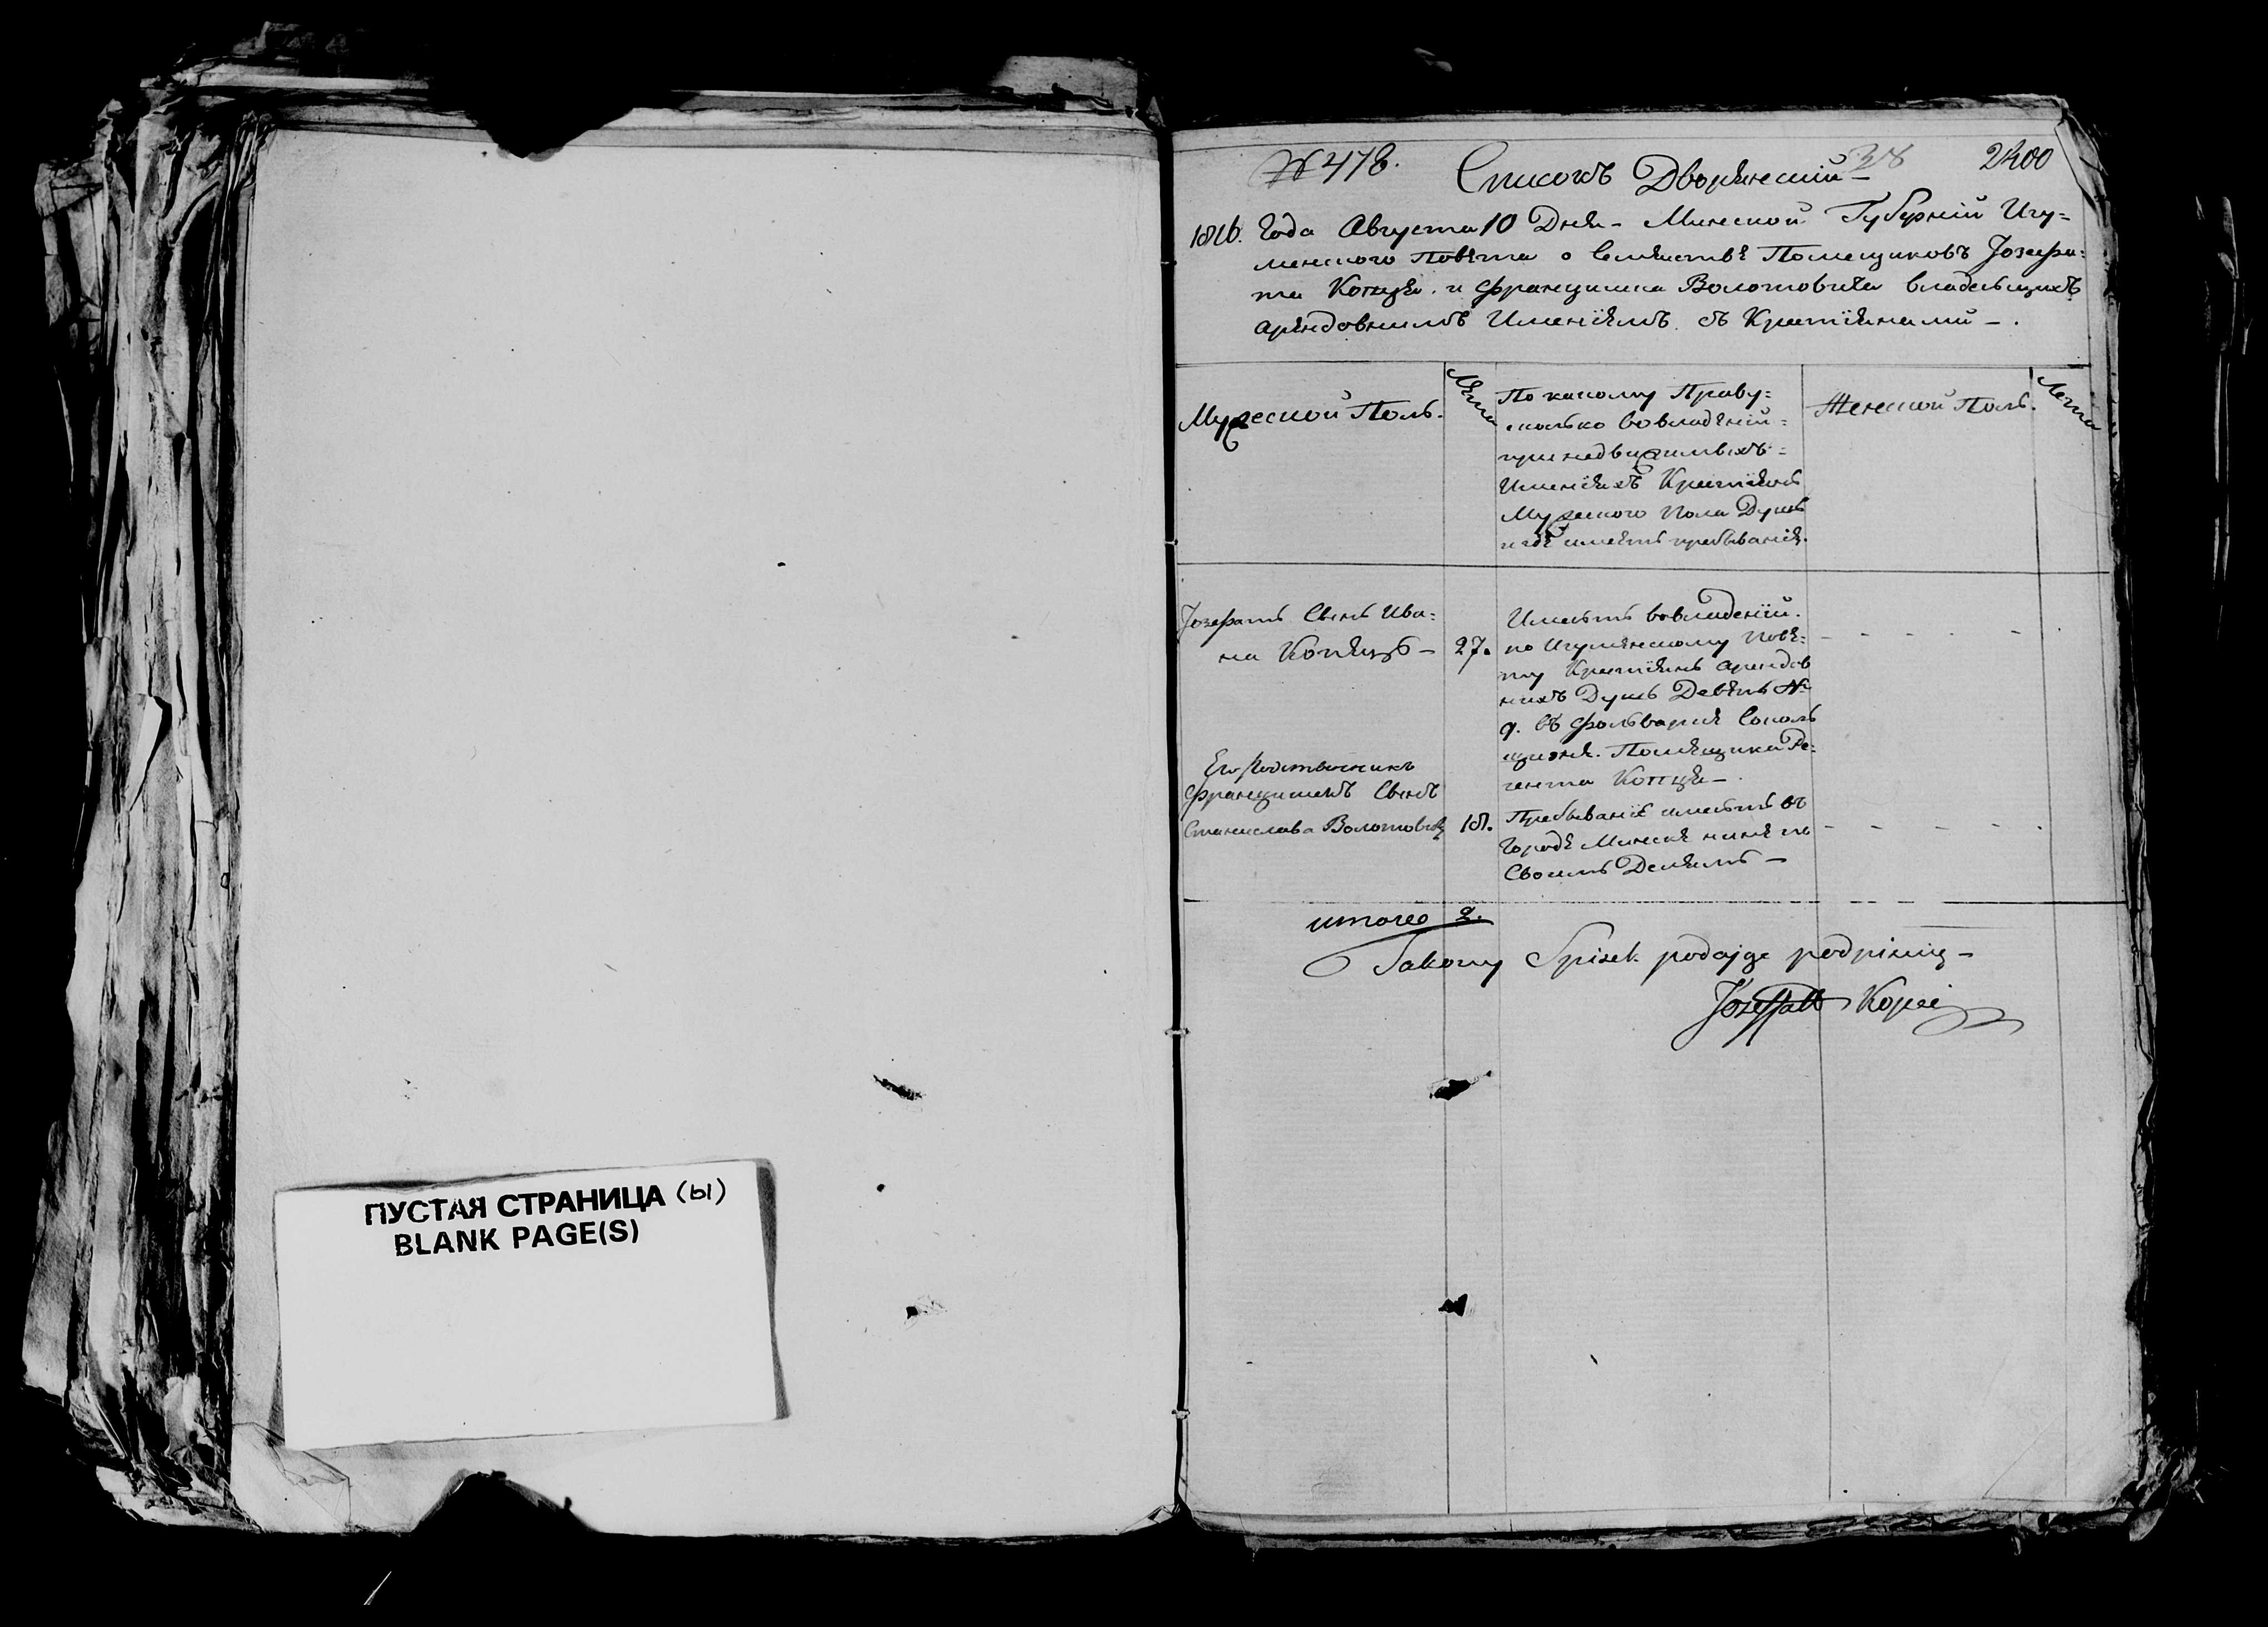 ПУСТАЯ СТРАНИЦА (ы)
BLANK PAGE(S)
№ 478. Списокъ Дворянский 2400
Года Августа 10 Дня - Минской Губернїй Игу=
менского Повѣта о Семѣиствѣ Помещиковъ Jозафа=
та Копця и Францишка Волотовича владеющихъ
арѣндовнимъ Именїямъ съ Крестїянами - .
Мужеской Полъ.
Лѣта
По какому Праву=
сколько вовладѣнїй=
при недвижимыхъ=
Именїяхъ Крестїянъ
Мужеского Пола Душъ
и гдѣ имѣетъ пребыванїя.
Женской Полъ.
Лета
Jозафатъ Сынъ Ива=
на Копѣцъ -
27.
Имѣетъ вовладенїй
по Игумѣнскому Повѣ=
ту Крестїянъ арендов
нихъ Душъ Девять №
9. въ фольваркѣ Соколъ
щизнѣ. Помѣщика Ре=
гента Копця - .
Его Родственникъ
Францишекъ Сынъ
Станислава Волотовичъ
18.
Пребыванїе имѣетъ въ
Городѣ Минскѣ нинѣ по
Своимъ Делямъ -
итого 2.
Takowy Spisek podajge podpisuię -
Jozeffatt Kopeć